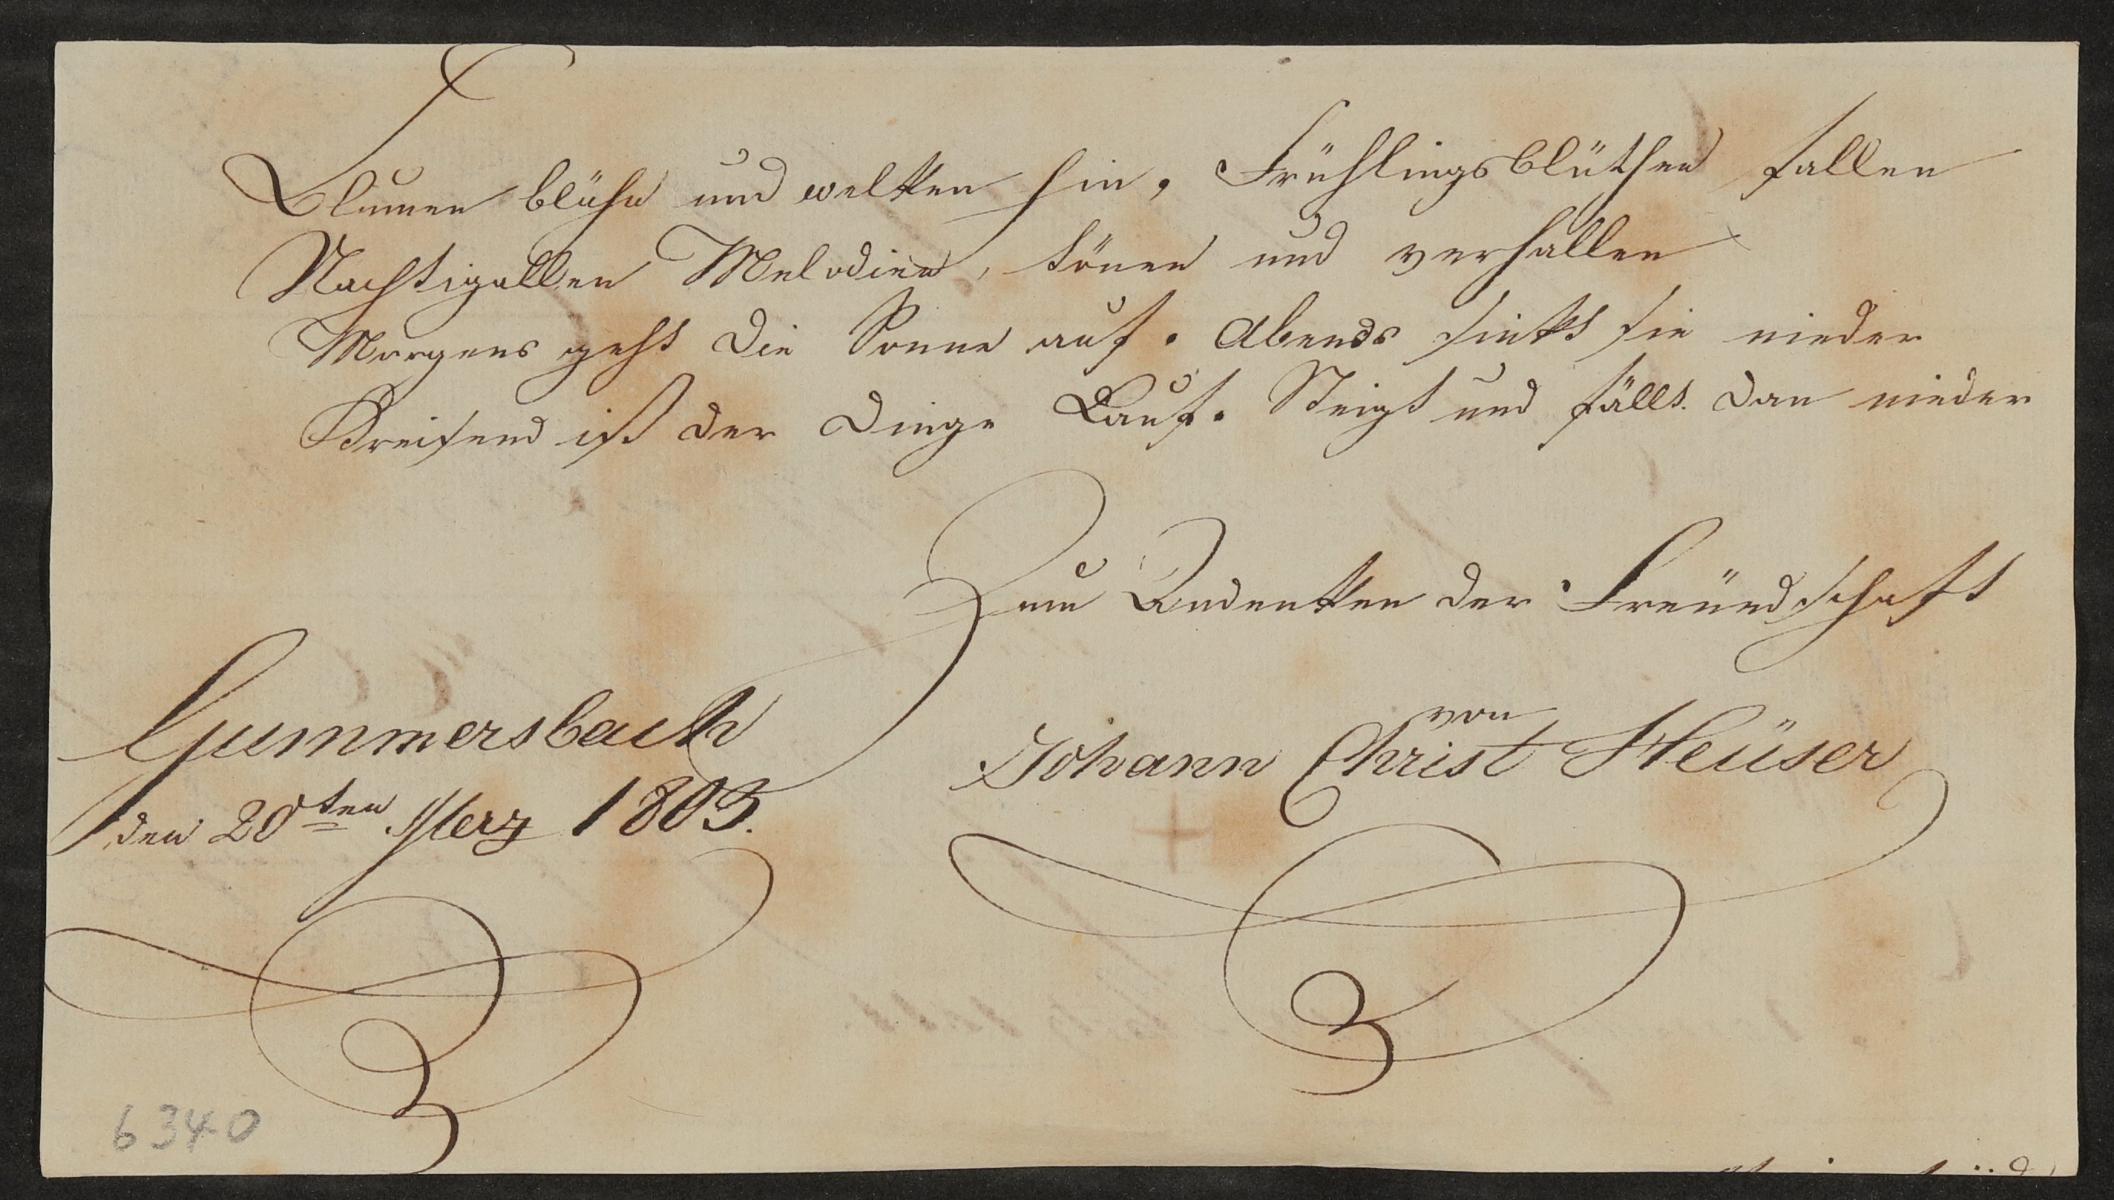 Blumen blühn und welken hin, Frühlingsblüthen fallen
Nachtigallen Melodien, tönen und verhallen
Morgens geht die Sonne auf. Abends sinkt sie nieder
Kreisend ist der Dinge Lauf. Steigt und fällt. dan nieder
Zum Andenken der Freündschaft
Gummersbach
von
Johann Christ Heüser
den 20ten Merz 1803.
6340